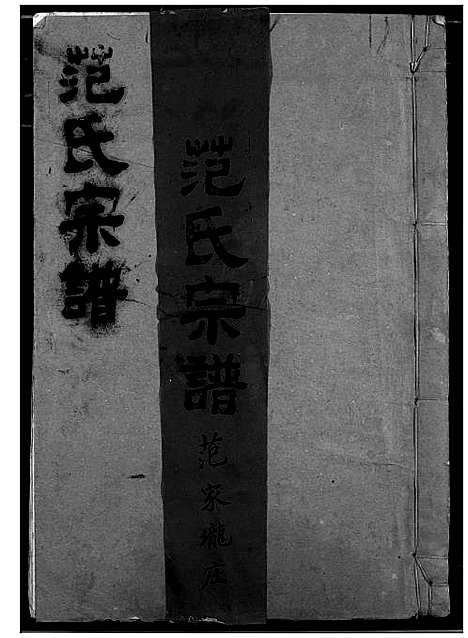 范氏宗譜
范氏宗譜
范家瓏庄